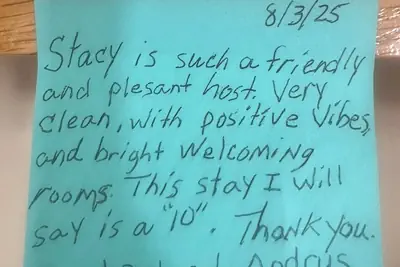 8/3/25
Stacy is such a friendly
and plesant host. Very
clean, with positive Vibes,
and bright Welcoming
rooms. This stay I Will
say is a "10". Thank you.
Andrus